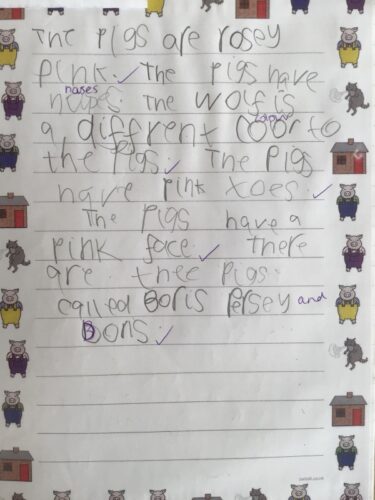 The Pigs are rosey
pink. The Pigs have
noses
The Wolf is
a diffrent coor to
colour
the Pigs. The Pigs
have pink toes.
The Pigs have a
pink face. there
are thee Pigs
called Boris Persey and
Dons.